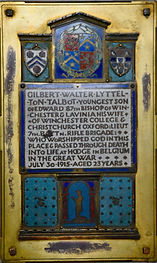 GILBERT·WALTER·LYTTEL-
TON·TALBOT·YOUNGEST SON
OF EDWARD 87TH BISHOP OF WIN-
CHESTER & LAVINIA HIS WIFE
OF WINCHESTER COLLEGE &
CHRISTCHURCH OXFORD: LIEUT
7TH BATTN. RIFLE BRIGADE:
WHO WORSHIPPED GOD IN THIS
PLACE & PASSED THROUGH DEATH
INTO LIFE AT HOOGE IN BELGIUM
IN THE GREAT WAR
JULY 30·1915·AGED 23 YEARS